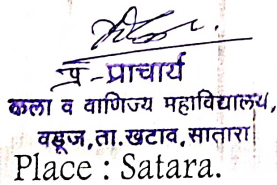 प्र-प्राचार्य
कला व वाणिज्य महाविद्यालय,
वडूज,ता.खटाव,सातारा
Place : Satara.